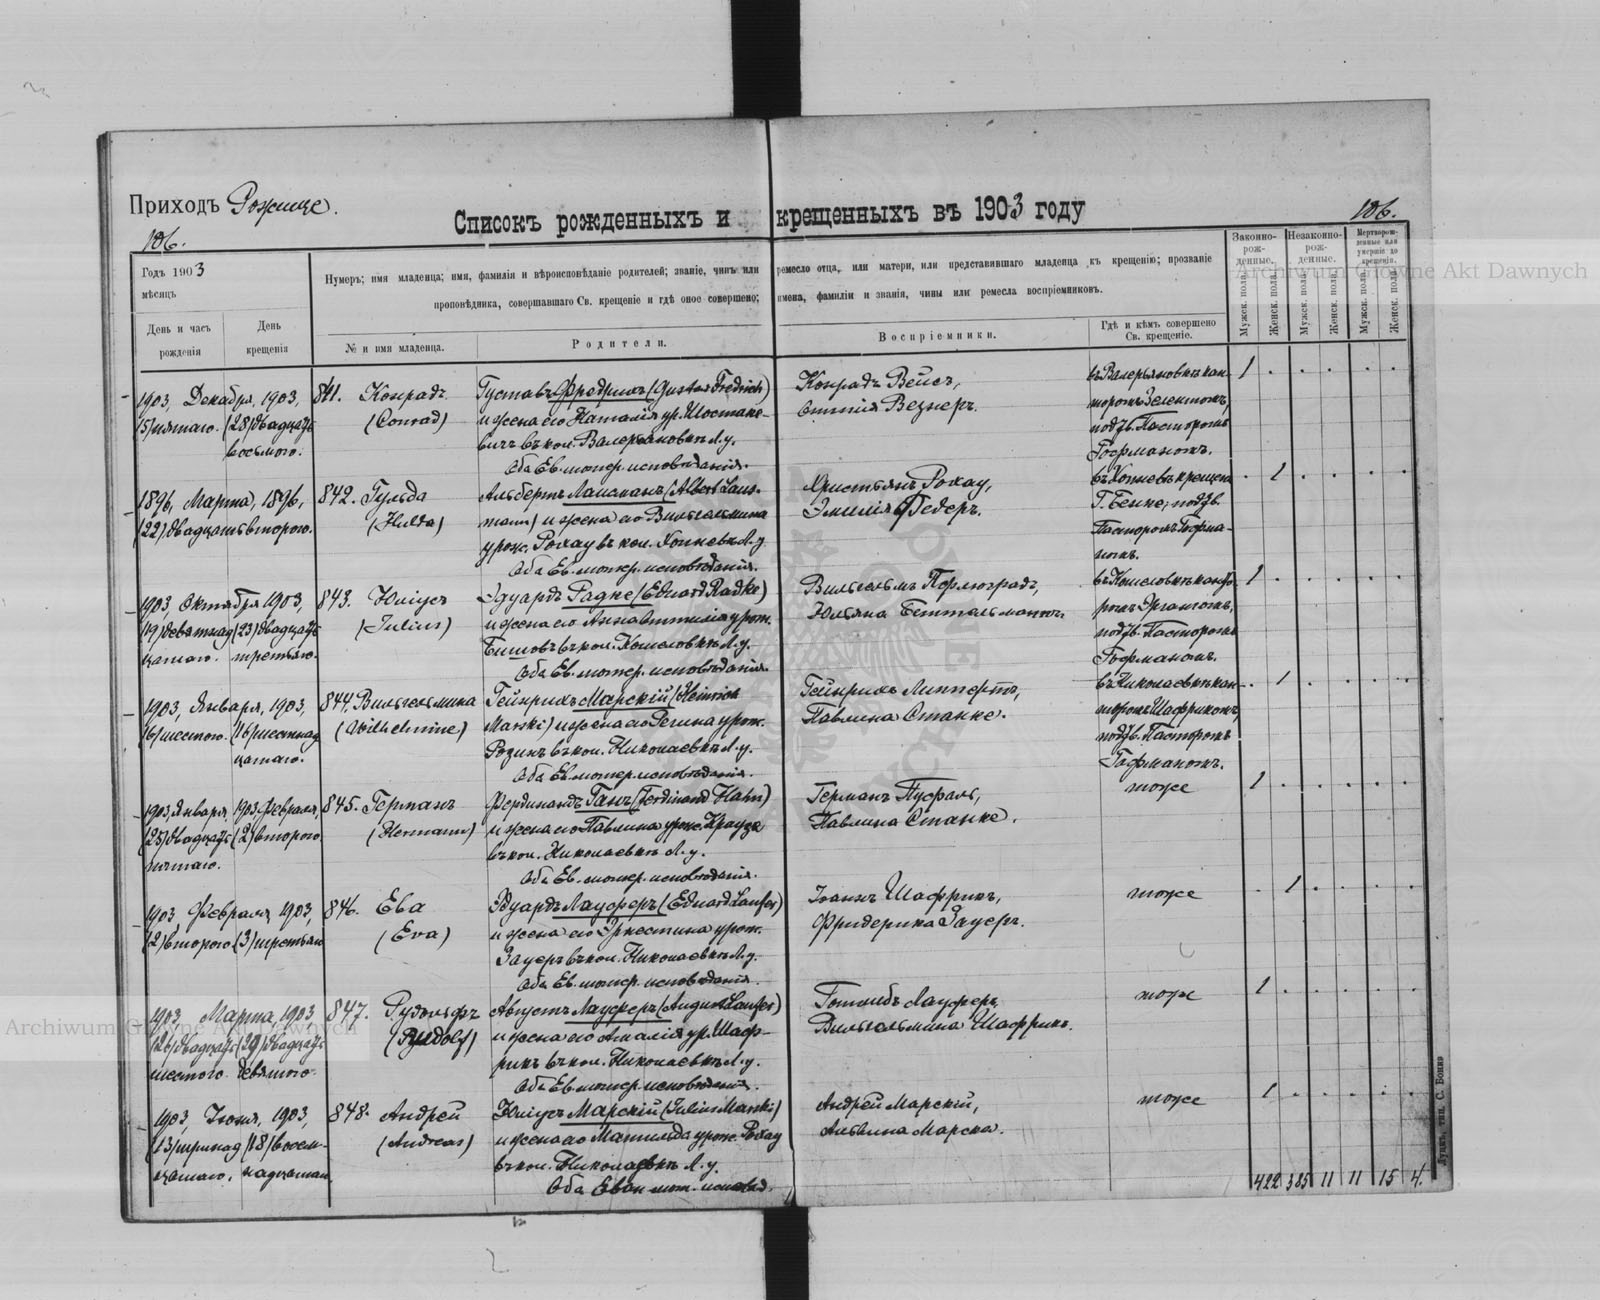 Приходъ Рожище.
Списокъ рожденныхъ и крещенныхъ въ 1903 году
106.
106.
Годъ 1903
мѣсяцъ
День и часъ рожденія
День крещенія
Нумеръ; имя младенца; имя, фамилія и вѣроисповѣданіе родителей; званіе, чинъ или ремесло отца, или матери, или представившаго младенца къ крещенію; прозваніе
проповѣдника, совершавшаго Св. крещеніе и гдѣ оное совершено; имена, фамиліи и званія, чины или ремесла воспріемниковъ.
№ и имя младенца.
Родители.
Воспріемники.
Гдѣ и кѣмъ совершено Св. крещеніе.
Законно-рож-денные.
Незаконно-рож-денные.
Мертворож-денные или умершіе до крещенія.
Мужск. пола.
Женск. пола.
Мужск. пола.
Женск. пола.
Мужск. пола.
Женск. пола.
Archiwum Główne Akt Dawnych
1903, Декабря, 1903,
(5) пятаго. (28) двадцать
восьмого.
841. Конрадъ
(Conrad)
Густавъ Фредрихъ (Gustav Fredrich)
и жена его Наталія ур. Шостаке-
вичъ въ кол. Валерьяновкѣ Л.у.
Оба Ев. лютер. исповѣданія.
Конрадъ Вейсъ,
Оттилія Везнеръ.
въ Валерьяновкѣ кан-
торомъ Зелентомъ,
подтв. Пасторомъ
Гофманомъ.
1
1896, Марта, 1896,
(22) двадцать второго.
842. Гульда
(Hulda)
Альбертъ Лаисманъ (Albert Laus-
mann) и жена его Вильгельмина
урож. Рохау въ кол. Копневкѣ Л.у.
Оба Ев. лютер. исповѣданія.
Христьянъ Рохау,
Эмилія Федеръ.
въ Копневкѣ крещена
Г. Бенке; подтв.
Пасторомъ Гофма-
номъ.
1
1903, Октября 1903,
(19) девятнад- (23) двадцать
цатаго. третьяго.
843. Юліусъ
(Julius)
Эдуардъ Радке (Eduard Radke)
и жена его Анна Оттилія урож.
Бишовъ въ кол. Кошеловкѣ Л.у.
Оба Ев. лютер. исповѣданія.
Вильгельмъ
Юльяна
въ Кошеловкѣ канто-
ромъ
подтв. Пасторомъ
Гофманомъ.
1
1903, Января, 1903,
(6) шестого. (16) шестнад-
цатаго.
844. Вильгельмина
(Wilhelmine)
Гейнрихъ Марскій (Heinrich
Marski) и жена его Регина урож.
Розинъ въ кол. Николаевкѣ Л.у.
Оба Ев. лютер. исповѣданія.
Гейнрихъ Липпертъ,
Павлина Станке.
въ Николаевкѣ кан-
торомъ Шафрикомъ,
подтв. Пасторомъ
Гофманомъ.
1
1903, Января, 1903, Февраля,
(25) двадцать (2) второго.
пятаго.
845. Германъ
(Hermann)
Фердинандъ Ганъ (Ferdinand Hahn)
и жена его Павлина урож. Краузе
въ кол. Николаевкѣ Л.у.
Оба Ев. лютер. исповѣданія.
Германъ Пусаль,
Павлина Станке.
тоже
1
1903 Февраля, 1903,
(2) второго. (3) третьяго
846. Ева
(Eva)
Эдуардъ Лауферъ (Eduard Laufer)
и жена его Эрнестина урож.
Зауеръ въ кол. Николаевкѣ Л.у.
Оба Ев. лютер. исповѣданія.
Іоганъ Шафрикъ,
Фридерика Зауеръ.
тоже
1
1903 Марта, 1903
(26) двадцать (29) двадцать
шестого. девятого.
847. Рудольфъ
(Rudolf)
Августъ Лауферъ (August Laufer)
и жена его Амалія ур. Шаф-
рикъ въ кол. Николаевкѣ Л.у.
Оба Ев. лютер. исповѣданія.
Готлибъ Лауферъ,
Вильгельмина Шафрикъ.
тоже
1
1903, Іюня, 1903,
(13) тринад- (18) восем-
цатаго. надцатаго.
848. Андрей
(Andreas)
Юліусъ Марскій (Julius Marski)
и жена его Матильда урож. Рохау
въ кол. Николаевкѣ Л.у.
Оба Еван. лют. исповѣд.
Андрей Марскій,
Альвина Марске.
тоже
1
422 385 11 11 15 4.
Луцкъ, тип. С. Бонка
Archiwum Główne Akt Dawnych